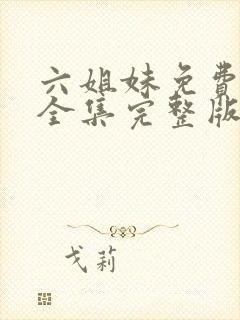 六姐妹免費
全集完整版
戈莉